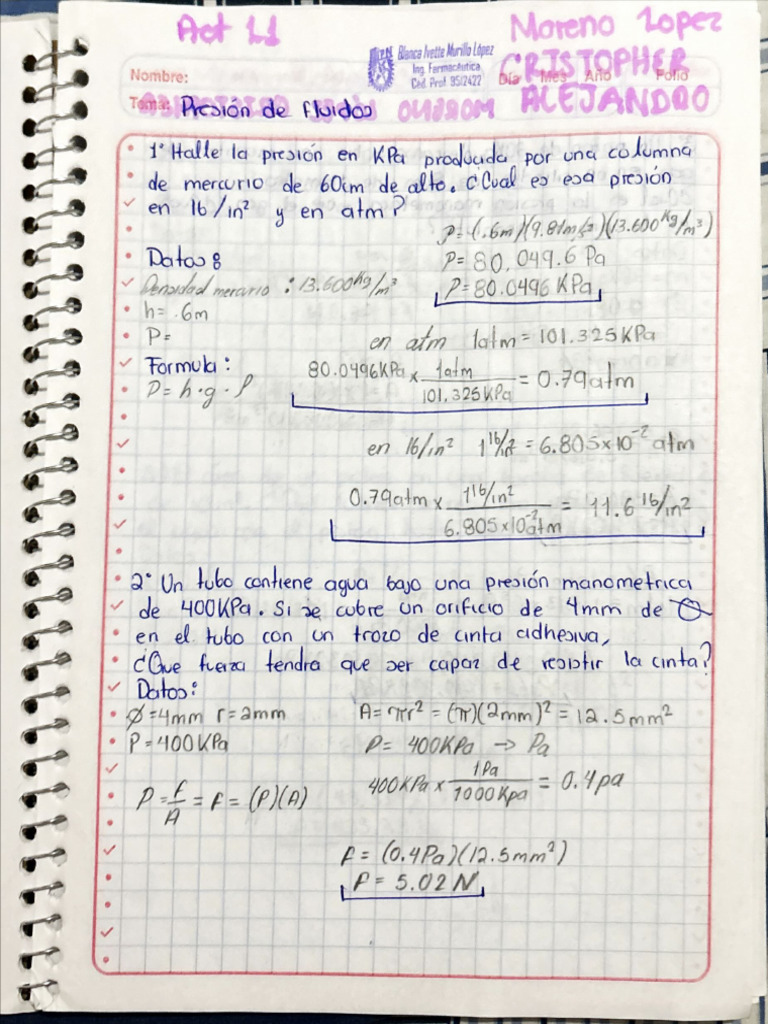 Act 1.1
Moreno Lopez
CRISTOPHER
ALEJANDRO
Blanca Ivette Murillo López
Ing. Farmacéutica
Céd. Prof. 9512422
Nombre:
Día Mes Año Folio
Tema: Presión de fluidos
1° Halle la presión en KPa producida por una columna
de mercurio de 60cm de alto. ¿Cual es esa presión
en lb/in² y en atm?
P=(.6m)(9.81m/s²)(13.600Kg/m³)
Datos:
P= 80,049.6 Pa
Densidad mercurio: 13.600Kg/m³
P= 80.0496 KPa
h= .6m
P=
en atm 1atm = 101.325KPa
Formula:
P= h·g·ρ
80.0496KPa x 1atm / 101.325KPa = 0.79atm
en lb/in² 1 lb/in² = 6.805x10⁻² atm
0.79atm x 1lb/in² / 6.805x10⁻²atm = 11.6 lb/in²
2° Un tubo contiene agua bajo una presión manometrica
de 400KPa. Si se cubre un orificio de 4mm de Ø
en el tubo con un trozo de cinta adhesiva,
¿Que fuerza tendra que ser capaz de resistir la cinta?
Datos:
Ø=4mm r=2mm
A= πr² = (π)(2mm)² = 12.5mm²
P=400KPa
P= 400KPa → Pa
400KPa x 1Pa / 1000Kpa = 0.4pa
P = F/A = F = (P)(A)
F = (0.4Pa)(12.5mm²)
F= 5.02 N